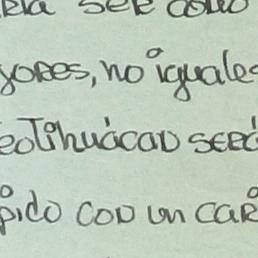 ser como
yores, no iguales
eotihuácan será
pido con un car